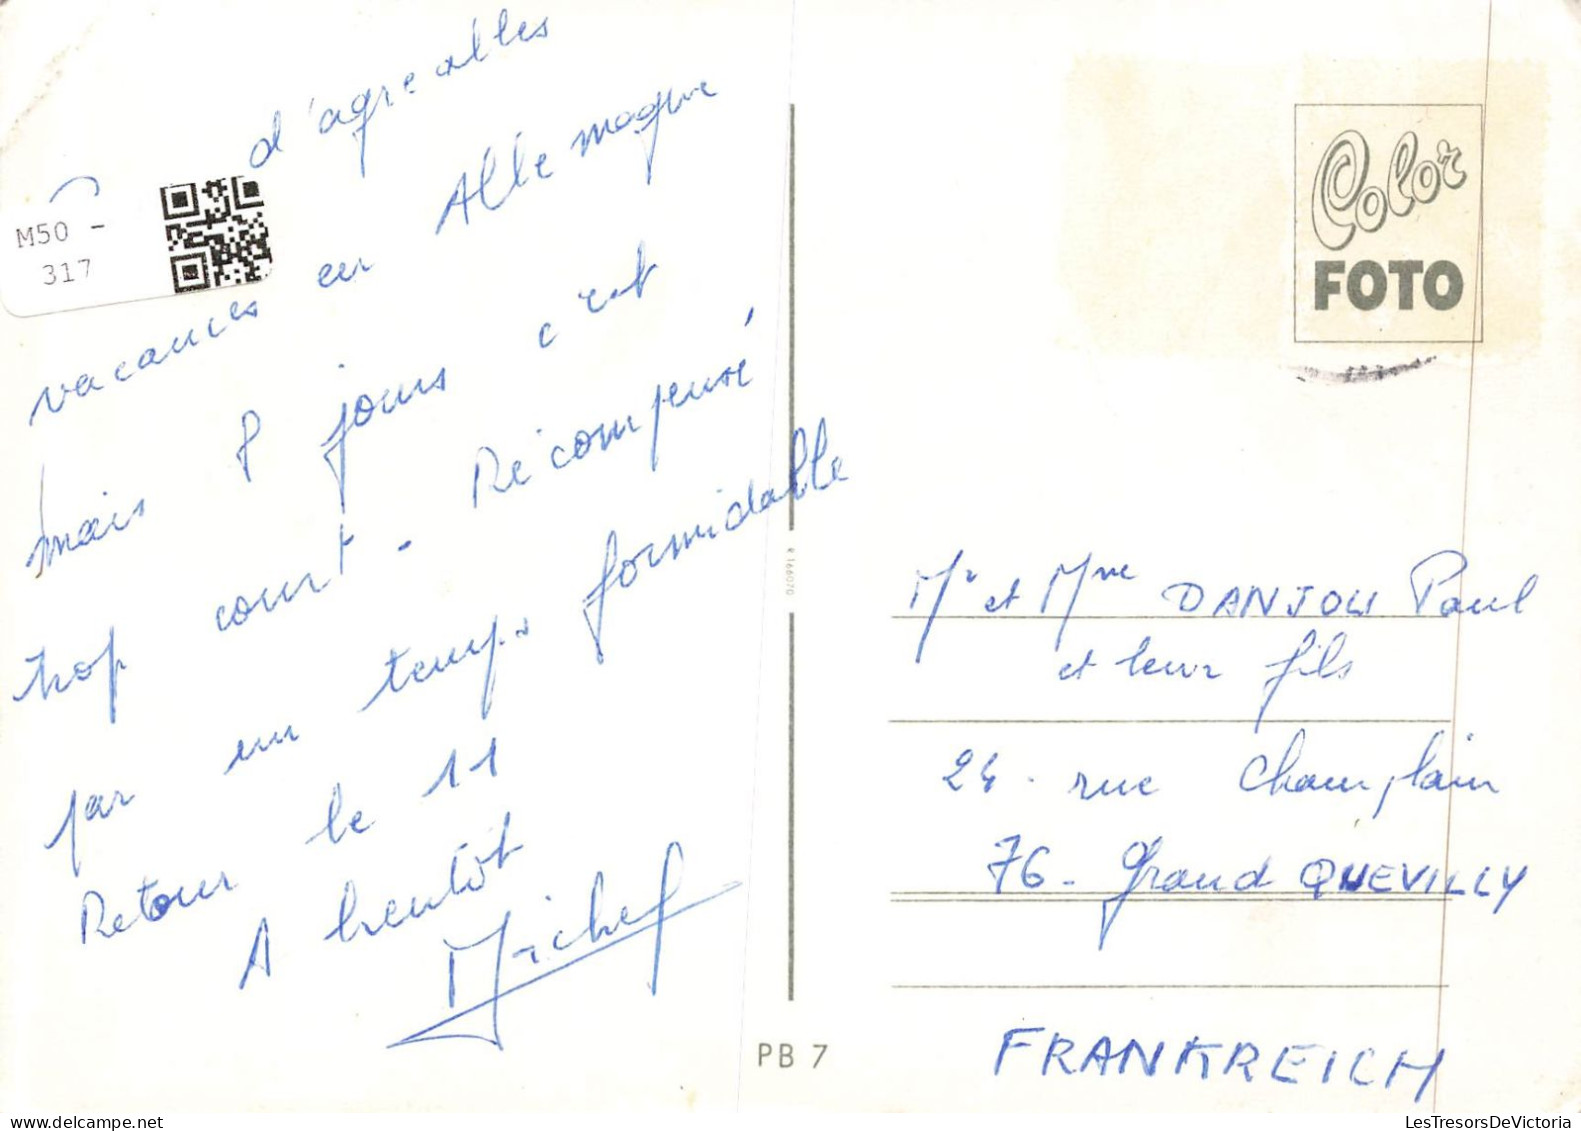 d'agreables
vacances en Allemagne
mais 8 jours c'est
trop court - Récompensé
par un temps formidable
Retour le 11
A bientôt
Michel
M50 -
317
Color
FOTO
R 166070
PB 7
Mr et Mme DANJOU Paul
et leur fils
24 - rue Champlain
76 - Grand QUEVILLY
FRANKREICH
LesTresorsDeVictoria